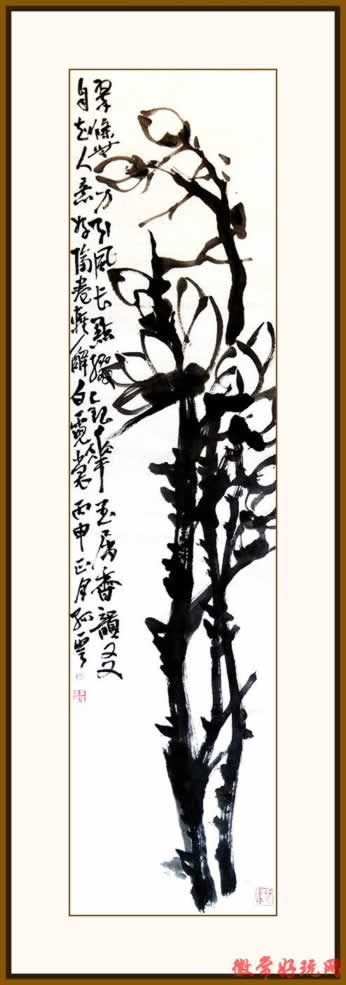 翠條無力引風長點綴銀華玉屑香韻友
自知人意好隔卷輕解白霓裳丙申正月
徽常好玩网